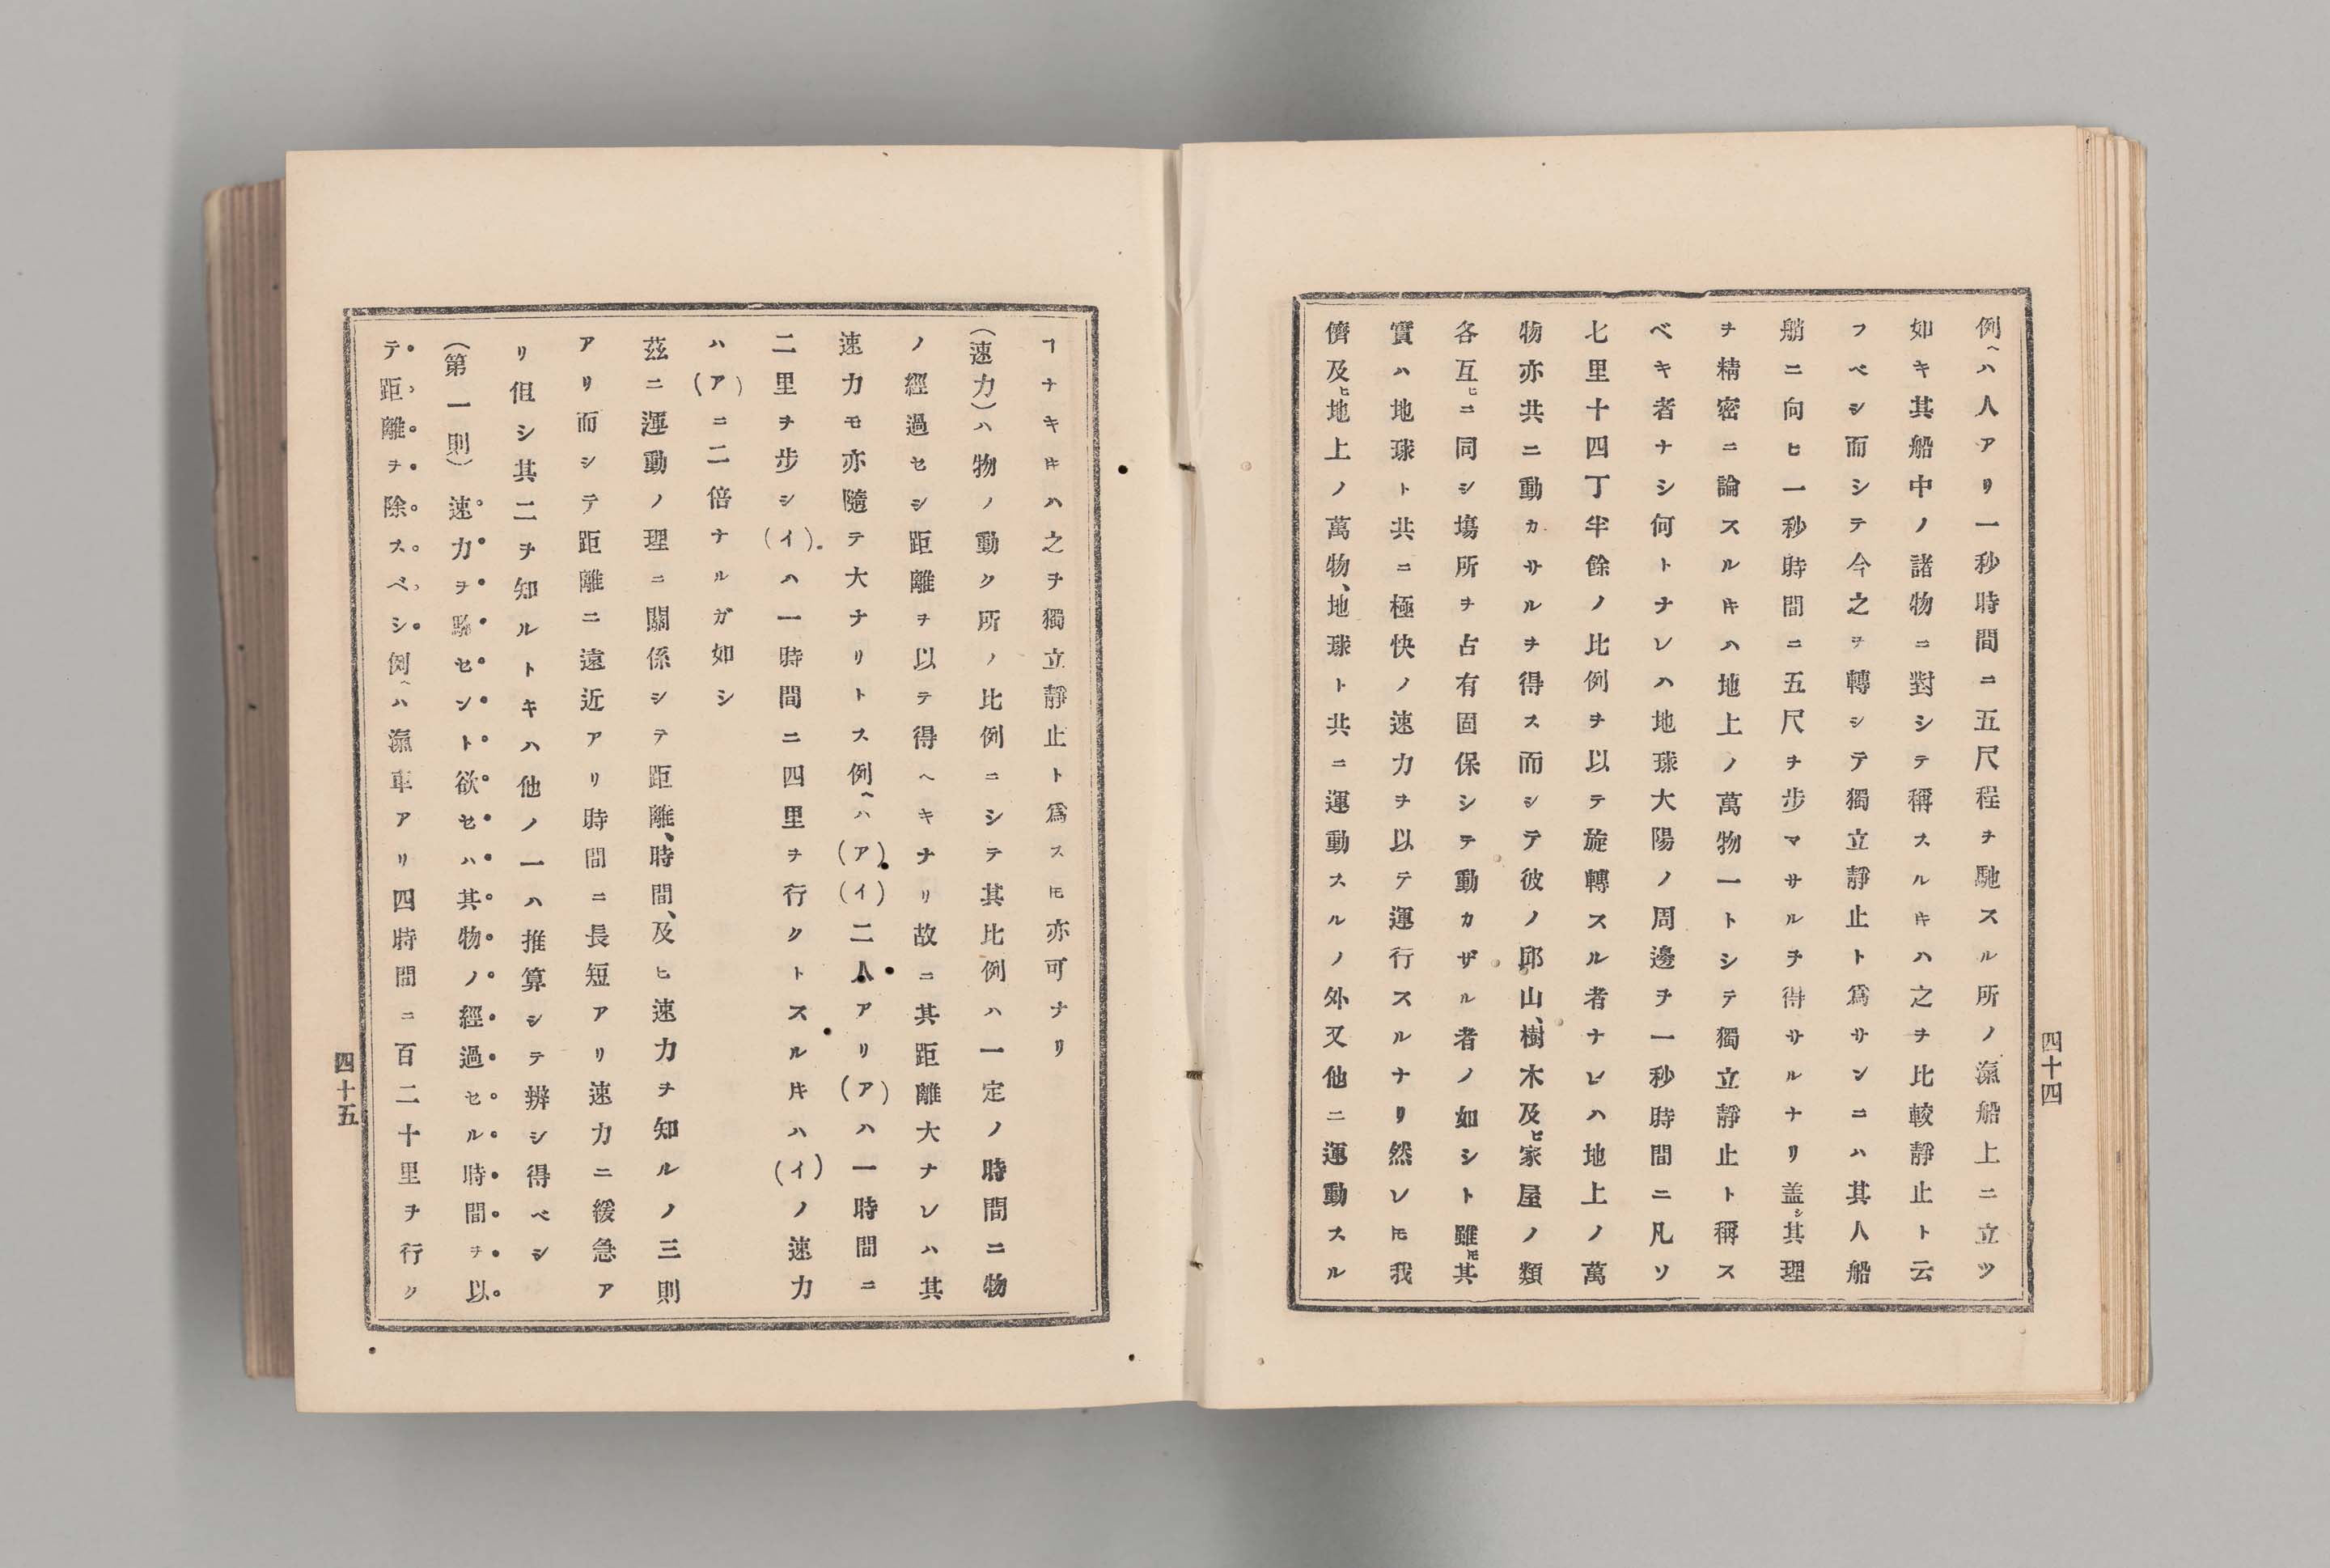 例ヘハ人アリ一秒時間ニ五尺程ヲ馳スル所ノ滊船上ニ立ツ
如キ其船中ノ諸物ニ對シテ稱スルキハ之ヲ比較靜止ト云
フベシ而シテ今之ヲ轉シテ獨立靜止ト爲サンニハ其人船
艄ニ向ヒ一秒時間ニ五尺ヲ步マサルヲ得サルナリ盖シ其理
ヲ精密ニ論スルキハ地上ノ萬物一トシテ獨立靜止ト稱ス
ベキ者ナシ何トナレハ地球大陽ノ周邊ヲ一秒時間ニ凡ソ
七里十四丁半餘ノ比例ヲ以テ旋轉スル者ナレハ地上ノ萬
物亦共ニ動カサルヲ得ス而シテ彼ノ邱山、樹木及ヒ家屋ノ類
各互ヒニ同シ塲所ヲ占有固保シテ動カザル者ノ如シト雖𪜈其
實ハ地球ト共ニ極快ノ速力ヲ以テ運行スルナリ然レ𪜈我
儕及ヒ地上ノ萬物、地球ト共ニ運動スルノ外又他ニ運動スル
四十四
ヿナキキハ之ヲ獨立靜止ト爲ス𪜈亦可ナリ
(速力)ハ物ノ動ク所ノ比例ニシテ其比例ハ一定ノ時間ニ物
ノ經過セシ距離ヲ以テ得ヘキナリ故ニ其距離大ナレハ其
速力モ亦隨テ大ナリトス例ヘハ(ア)(イ)二人アリ(ア)ハ一時間ニ
二里ヲ步シ(イ)ハ一時間ニ四里ヲ行クトスルキハ(イ)ノ速力
ハ(ア)ニ二倍ナルガ如シ
茲ニ運動ノ理ニ關係シテ距離、時間、及ヒ速力ヲ知ルノ三則
アリ而シテ距離ニ遠近アリ時間ニ長短アリ速力ニ緩急ア
リ但シ其二ヲ知ルトキハ他ノ一ハ推算シテ辨シ得ベシ
(第一則)速力ヲ騐セント欲セハ其物ノ經過セル時間ヲ以
テ距離ヲ除スベシ例ヘハ滊車アリ四時間ニ百二十里ヲ行ク
四十五